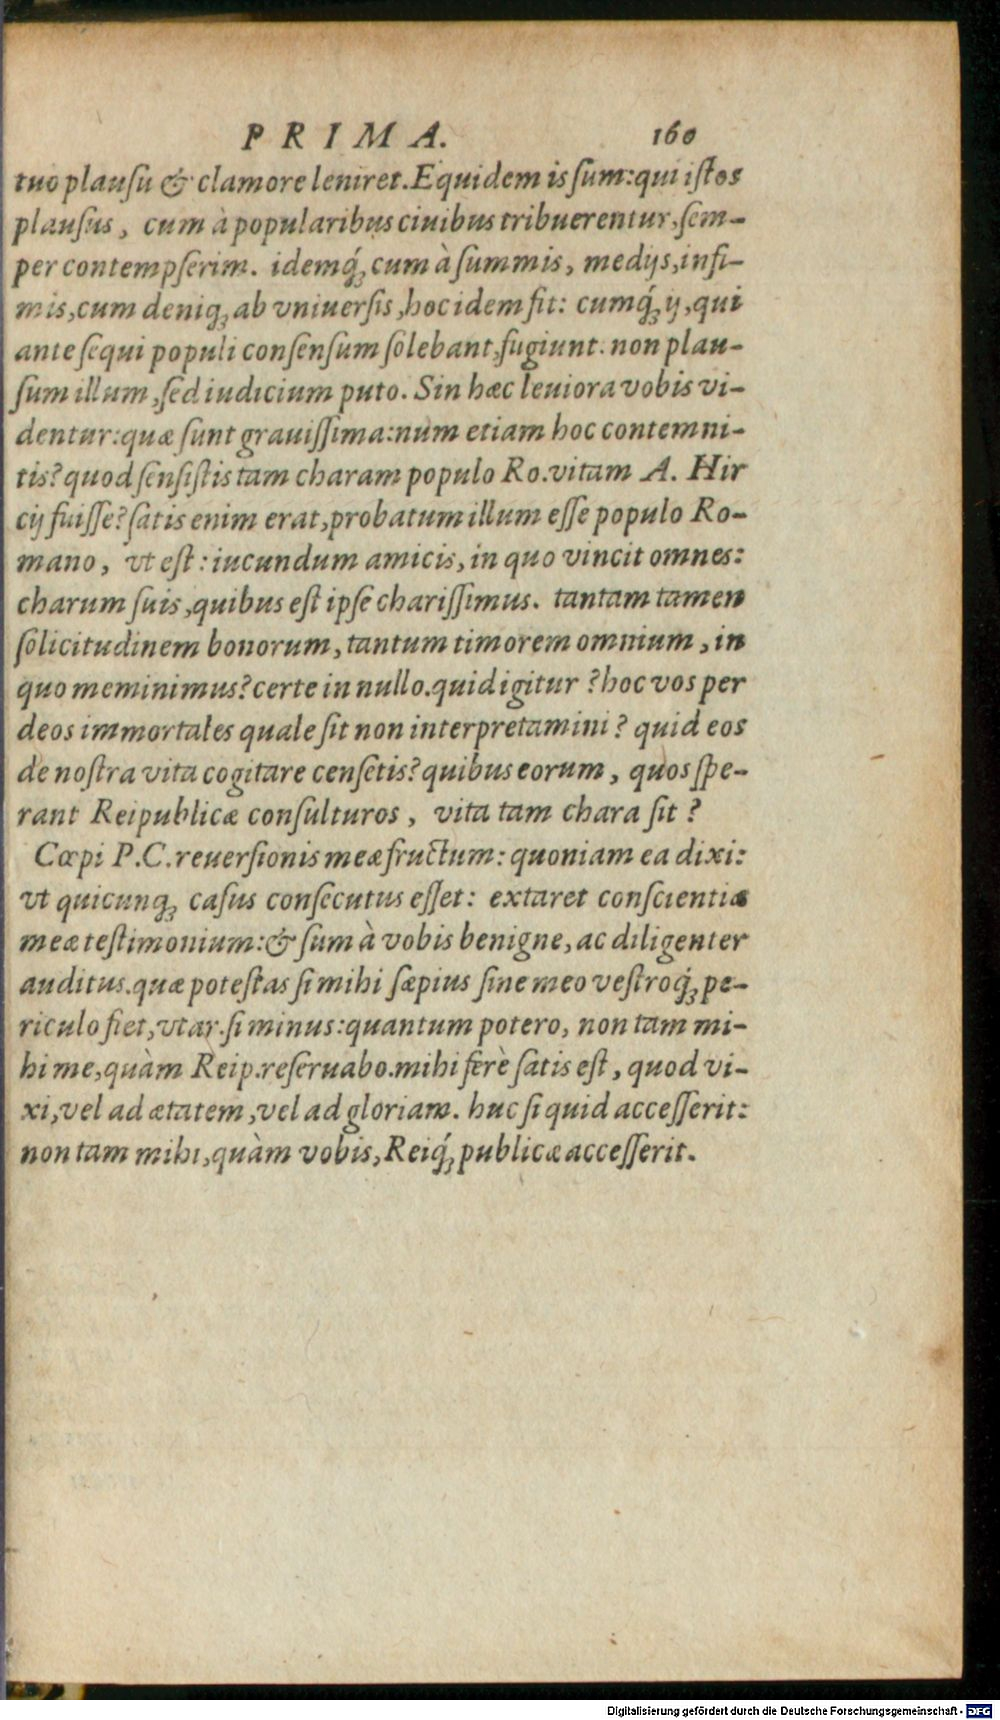 PRIMA. 160
tuo plauſu & clamore leniret. Equidem is ſum: qui iſtos
plauſus, cum à popularibus ciuibus tribuerentur, ſem-
per contempſerim. idemq́; cum à ſummis, medijs, infi-
mis, cum deniq; ab vniuerſis, hoc idem fit: cumq́; ij, qui
ante ſequi populi conſenſum ſolebant, fugiunt: non plau-
ſum illum, ſed iudicium puto. Sin hæc leuiora vobis vi-
dentur: quæ ſunt grauiſſima: num etiam hoc contemni-
tis? quod ſenſiſtis tam charam populo Ro. vitam A. Hir
cij fuiſſe? ſatis enim erat, probatum illum eſſe populo Ro-
mano, vt eſt: iucundum amicis, in quo vincit omnes:
charum ſuis, quibus eſt ipſe chariſſimus. tantam tamen
ſolicitudinem bonorum, tantum timorem omnium, in
quo meminimus? certe in nullo. quid igitur? hoc vos per
deos immortales quale ſit non interpretamini? quid eos
de noſtra vita cogitare cenſetis? quibus eorum, quos ſpe-
rant Reipublicæ conſulturos, vita tam chara ſit?
Cœpi P.C. reuerſionis meæ fructum: quoniam ea dixi:
vt quicunq; caſus conſecutus eſſet: extaret conſcientiæ
meæ teſtimonium: & ſum à vobis benigne, ac diligenter
auditus. quæ poteſtas ſi mihi ſæpius ſine meo veſtroq́; pe-
riculo fiet, vtar. ſi minus: quantum potero, non tam mi-
hi me, quàm Reip. reſeruabo. mihi ferè ſatis eſt, quod vi-
xi, vel ad ætatem, vel ad gloriam. huc ſi quid acceſſerit:
non tam mihi, quàm vobis, Reiq́; publicæ acceſſerit.
Digitalisierung gefördert durch die Deutsche Forschungsgemeinschaft - DFG